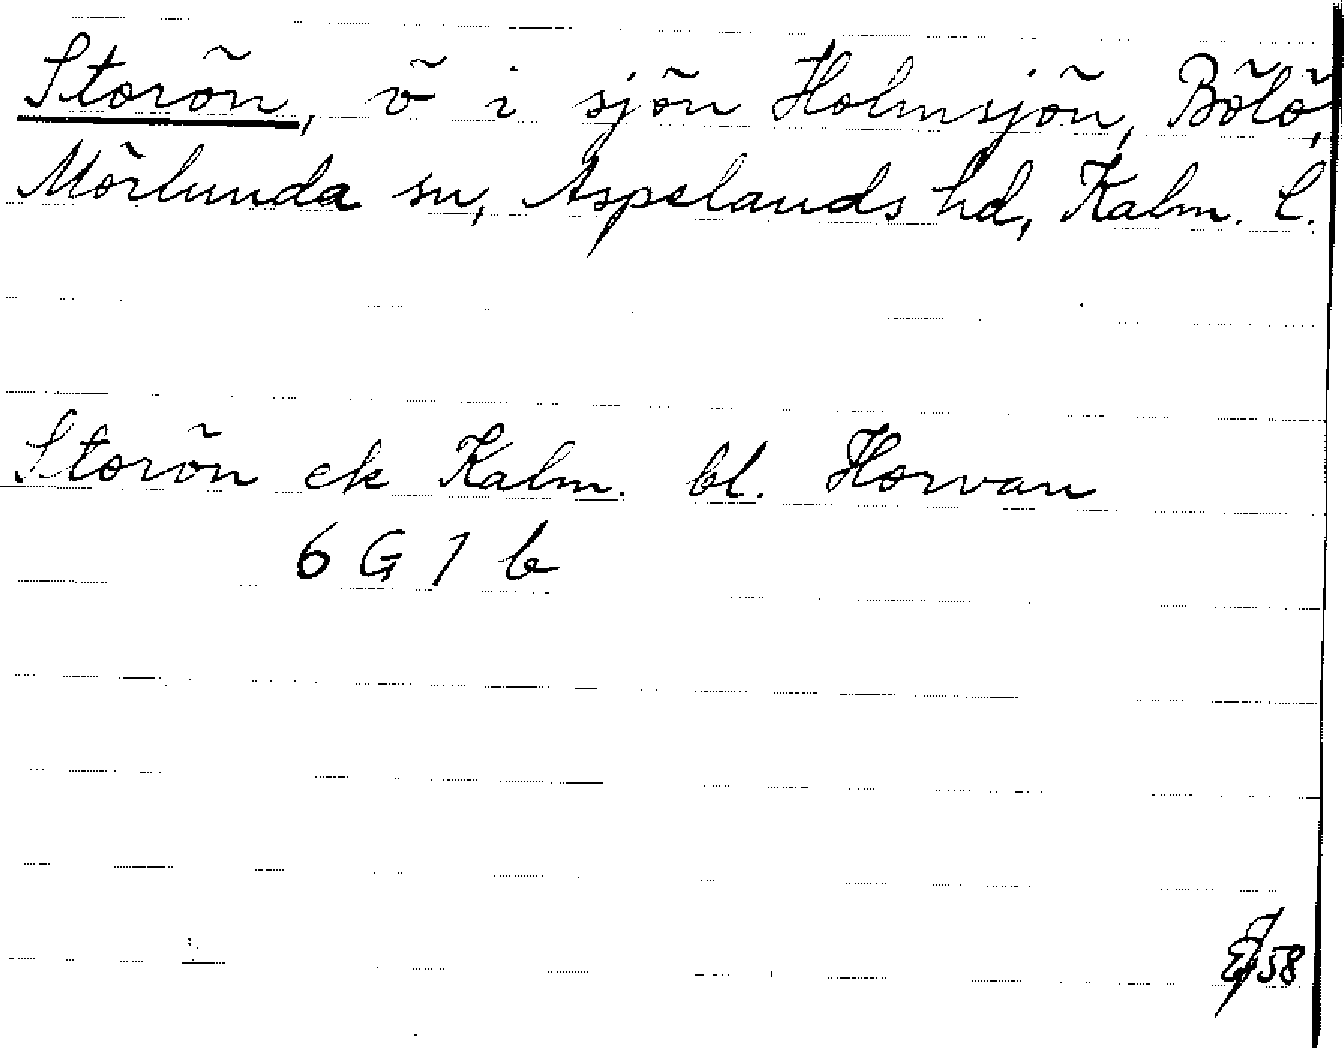 Storön, ö i sjön Holmsjön, Bölö,
Mörlunda sn, Aspelands hd, Kalm. l.
Storön ek Kalm. bl. Horvan
6 G 1 b
58